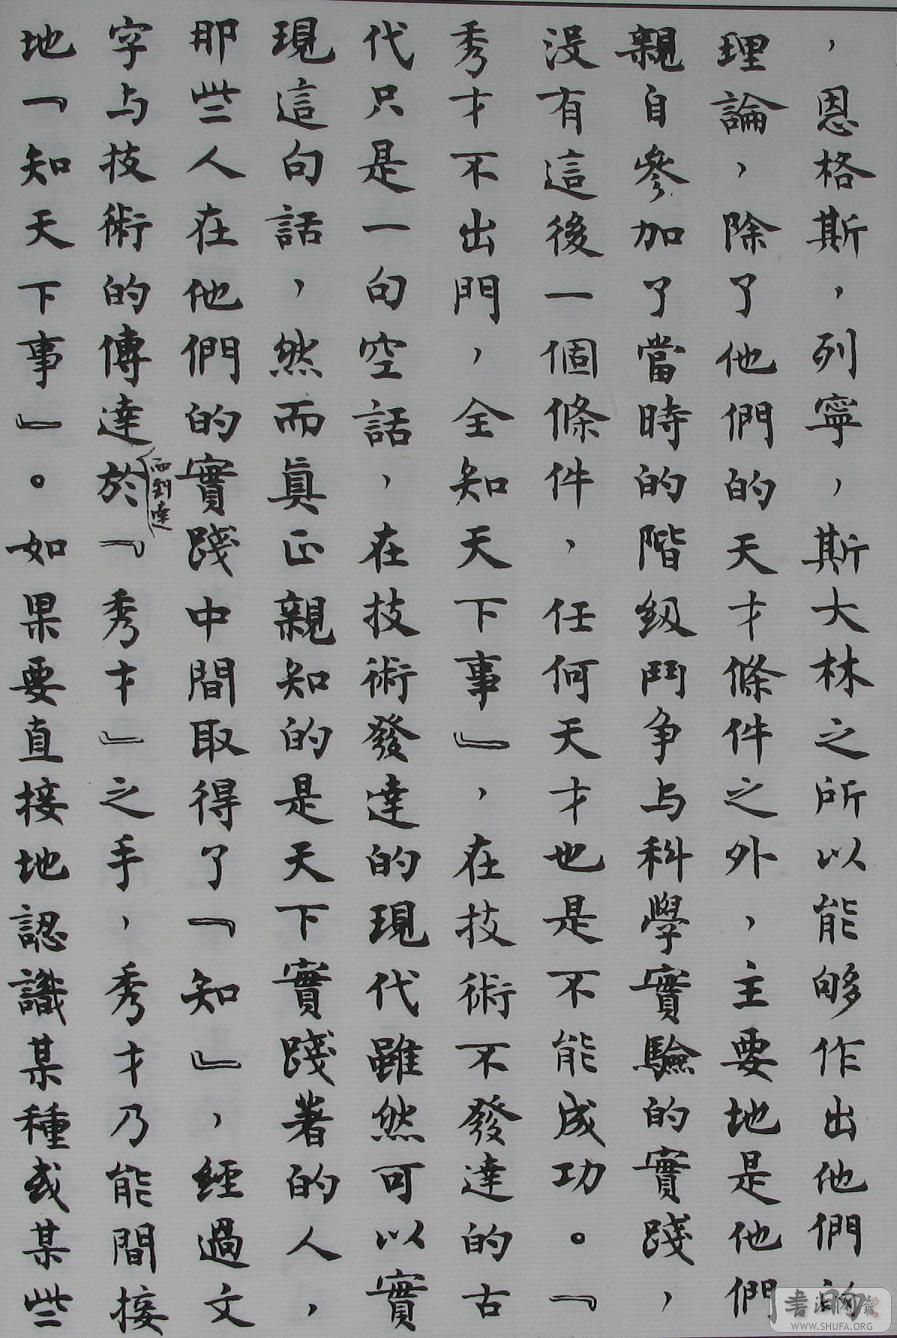 ，恩格斯，列寧，斯大林之所以能够作出他們的
理論，除了他們的天才條件之外，主要地是他們
親自參加了當時的階級鬥争与科學實驗的實踐，
没有這後一個條件，任何天才也是不能成功。『
秀才不出門，全知天下事』，在技術不發達的古
代只是一句空話，在技術發達的現代雖然可以實
現這句話，然而真正親知的是天下實踐著的人，
那些人在他們的實踐中間取得了『知』，經過文
字与技術的傳達於『秀才』之手，秀才乃能間接
而到達
地『知天下事』。如果要直接地認識某種或某些
書法
WWW.SHUFA.ORG